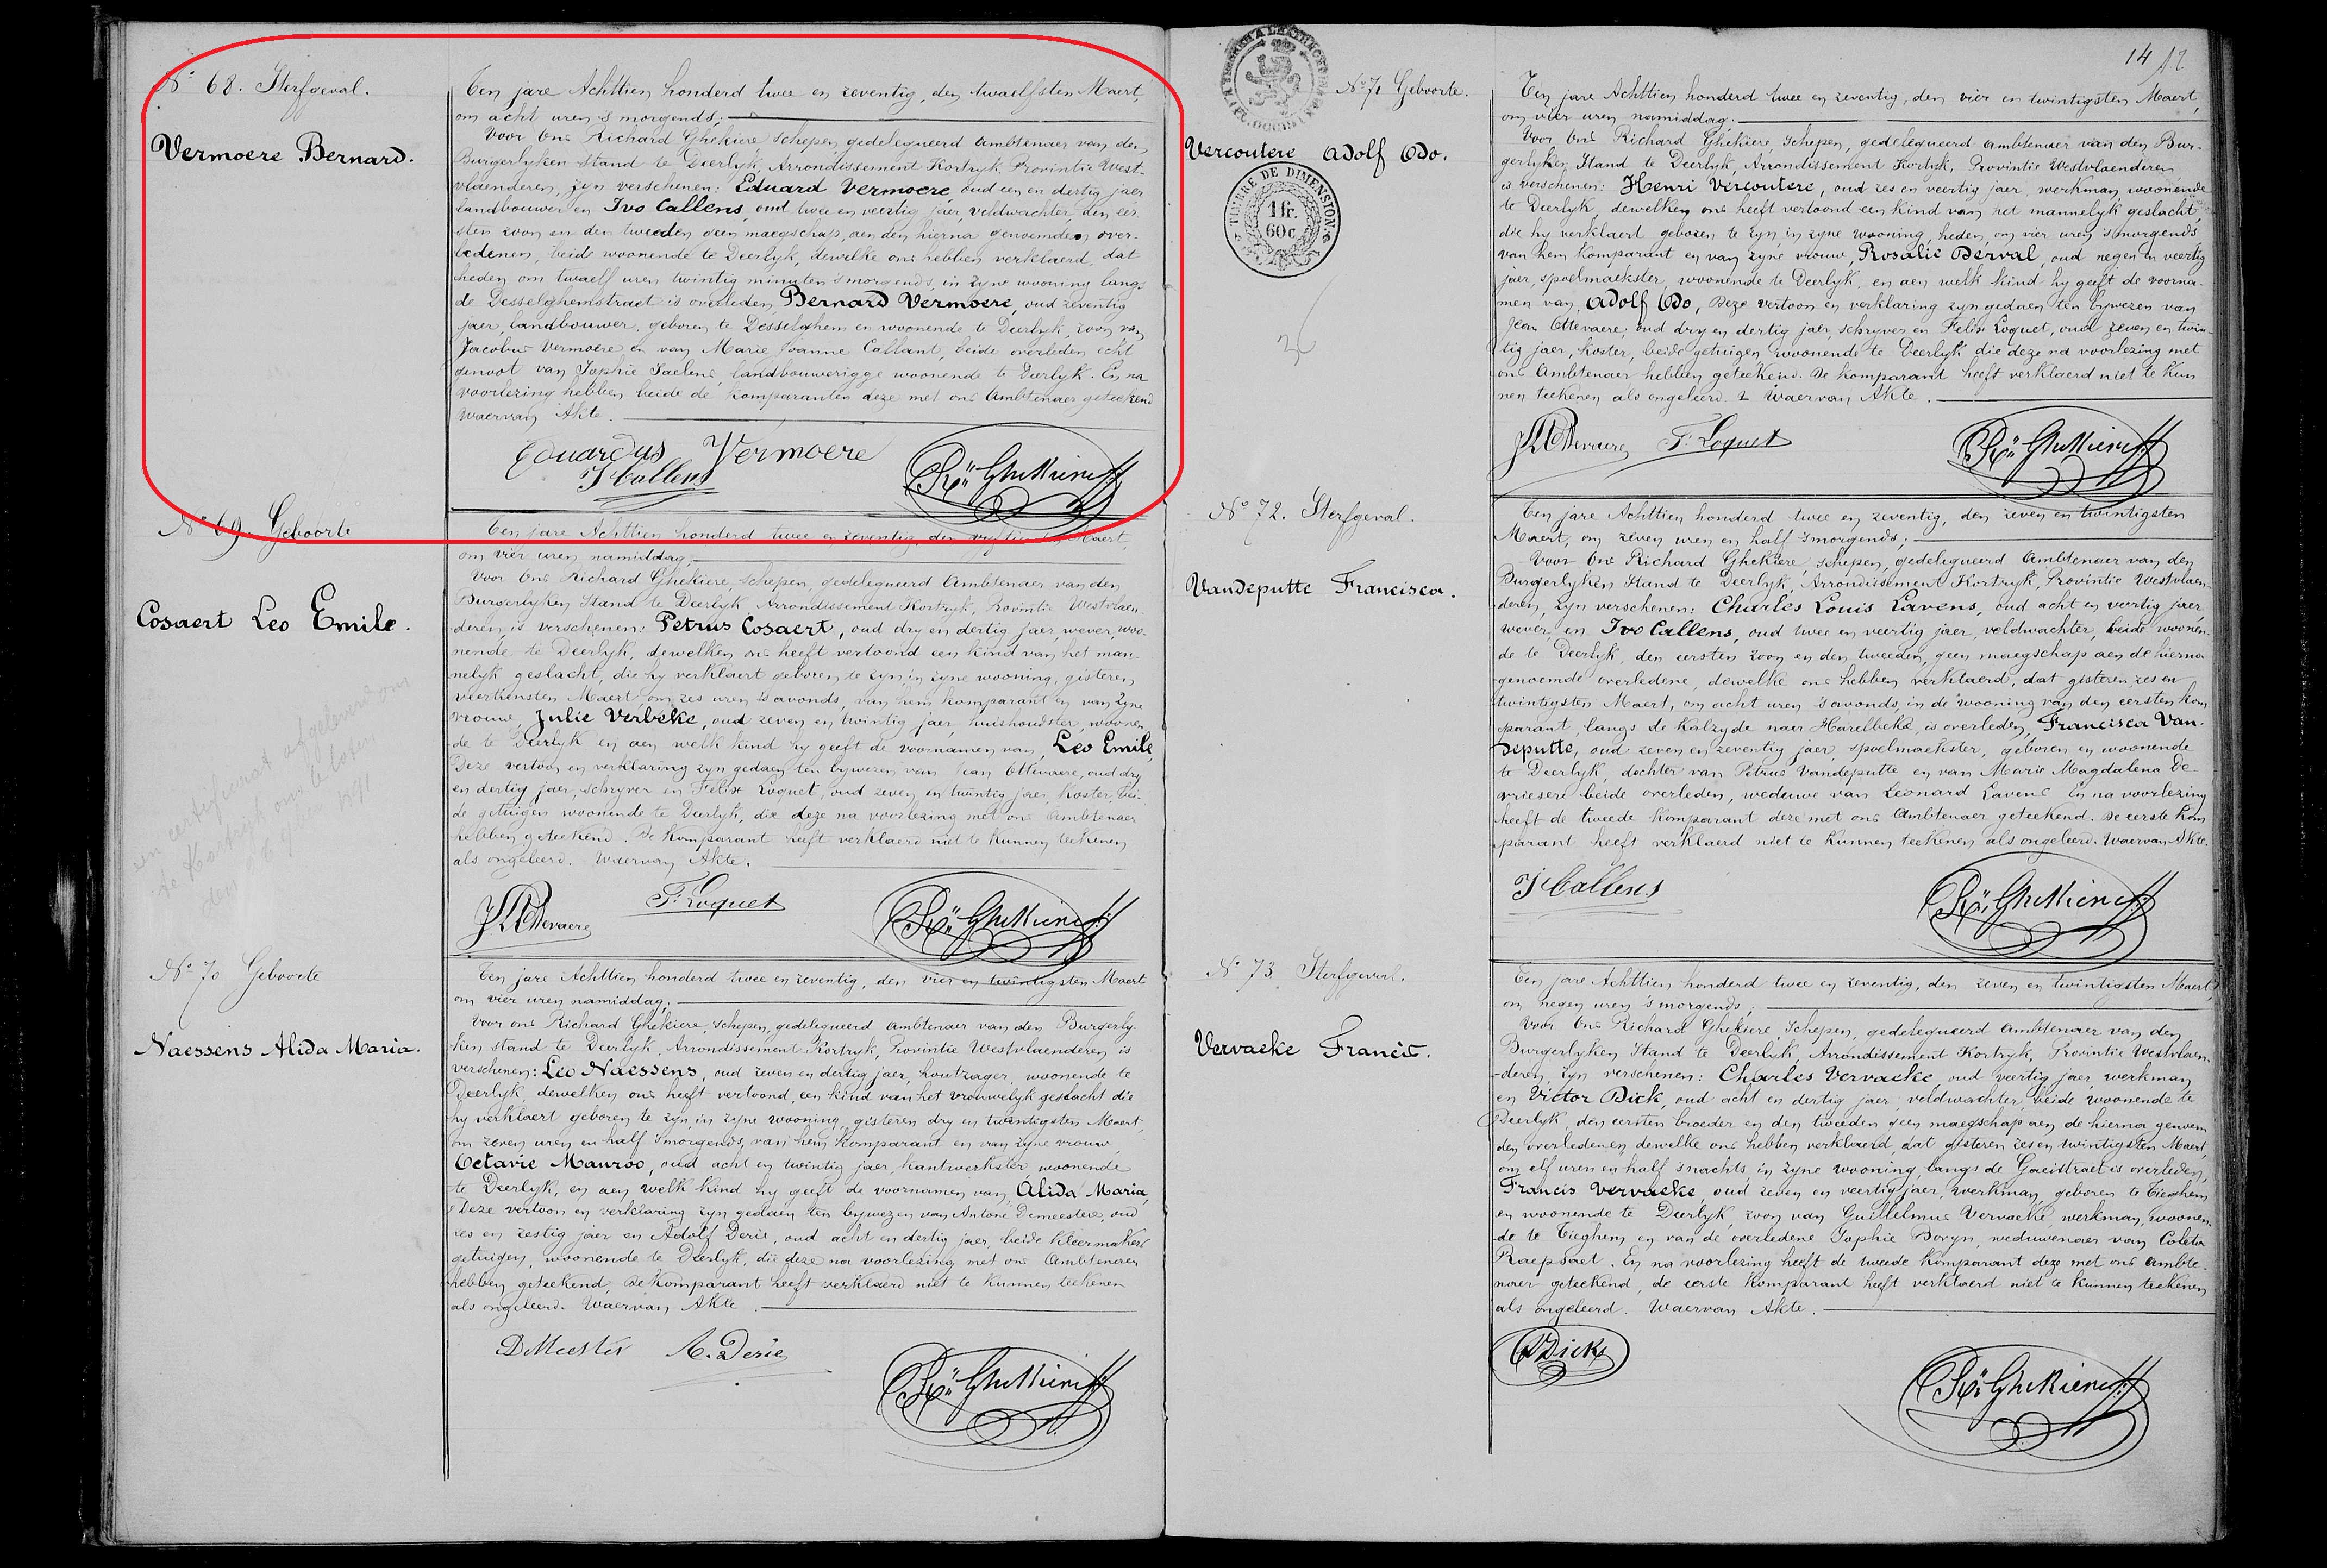 Nº 68. Sterfgeval.
Vermoere Bernard.
Ten jare Achttien honderd twee en zeventig, den twaelfsten Maert,
om acht uren 's morgends;
Voor Ons Richard Ghekiere, schepen, gedelegueerd Ambtenaer van den
Burgerlyken stand te Deerlyk, Arrondissement Kortryk, Provintie West-
vlaenderen, zyn verschenen: Eduard Vermoere oud een en dertig jaer
landbouwer en Ivo Callens, oud twee en veertig jaer, veldwachter, den eer-
sten zoon en den tweeden geen maegschap, aen den hierna genoemden over-
ledenen, beide woonende te Deerlyk, dewelke ons hebben verklaerd, dat
heden om twaelf uren twintig minuten 's morgends, in zyne wooning langs
de Desselghemstraet is overleden, Bernard Vermoere, oud zeventig
jaer, landbouwer, geboren te Desselghem en woonende te Deerlyk, zoon van
Jacobus Vermoere en van Marie Joanne Callant, beide overleden echt
genoot van Sophie Saelens, landbouwerigge woonende te Deerlyk. En na
voorlezing hebben beide de komparanten deze met ons Ambtenaer geteekend
Waervan Akte.
Eduardus Vermoere
I Callens
Rd Ghekiere
Nº 69. Geboorte
Cosaert Leo Emile.
Ten jare Achttien honderd twee en zeventig, den vyftienden Maert,
om vier uren namiddag,
Voor Ons Richard Ghekiere schepen, gedelegueerd Ambtenaer van den
Burgerlyken Stand te Deerlyk, Arrondissement Kortryk, Provintie Westvlaen-
deren, is verschenen: Petrus Cosaert, oud dry en dertig jaer, wever, woo-
nende te Deerlyk, dewelken ons heeft vertoond een kind van het man-
nelyk geslacht, die hy verklaert geboren te zyn, in zyne wooning, gisteren
veertiensten Maert, om zes uren 's avonds, van hem komparant en van zyne
vrouw, Julie Verbeke, oud zeven en twintig jaer, huishoudster, woonen-
de te Deerlyk en aen welk kind hy geeft de voornamen van, Leo Emile,
Deze vertoon en verklaring zyn gedaen ten bywezen van Jean Ottevaere, oud dry
en dertig jaer, schryver en Felix Loquet, oud zeven en twintig jaer, koster, bei-
de getuigen woonende te Deerlyk, die deze na voorlezing met ons Ambtenaer
hebben geteekend. De komparant heeft verklaerd niet te kunnen teekenen
als ongeleerd. Waervan Akte.
J Ottevaere
F. Loquet
Rd Ghekiere
Nº 70 Geboorte
Naessens Alida Maria.
Ten jare Achttien honderd twee en zeventig, den vier en twintigsten Maert
om vier uren namiddag.
Voor ons Richard Ghekiere, schepen, gedelegueerd Ambtenaer van den Burgerly-
ken stand te Deerlyk, Arrondissement Kortryk, Provintie Westvlaenderen is
verschenen: Leo Naessens, oud zeven en dertig jaer, houtzager, woonende te
Deerlyk, dewelken ons heeft vertoond, een kind van het vrouwelyk geslacht die
hy verklaert geboren te zyn, in zyne wooning, gisteren dry en twintigsten Maert,
om zeven uren en half 's morgends, van hem komparant en van zyne vrouw,
Octavie Manroo, oud acht en twintig jaer, kantwerkster, woonende
te Deerlyk, en aen welk kind hy geeft de voornamen van, Alida Maria,
Deze vertoon en verklaring zyn gedaen ten bywezen van Antone Demeestere, oud
zes en zestig jaer en Adolf Derie, oud acht en dertig jaer, beide kleermakers
getuigen, woonende te Deerlyk, die deze na voorlezing met ons Ambtenaer
hebben geteekend, de komparant heeft verklaerd niet te kunnen teekenen
als ongeleerd. Waervan Akte.
DMeester
A. Derie
Rd Ghekiere
14 12
Nº 71 Geboorte.
Vercoutere Adolf Odo.
TIMBRE DE DIMENSION
1 fr.
60 c.
Ten jare Achttien honderd twee en zeventig, den vier en twintigsten Maert,
om vier uren namiddag.
Voor Ons Richard Ghekiere, schepen, gedelegueerd Ambtenaer van den Bur-
gerlyken Stand te Deerlyk, Arrondissement Kortryk, Provintie Westvlaenderen
is verschenen: Henri Vercoutere, oud zes en veertig jaer, werkman, woonende
te Deerlyk, dewelken ons heeft vertoond een kind van het mannelyk geslacht,
die hy verklaert geboren te zyn, in zyne wooning, heden, om vier uren 's morgends
van hem komparant en van zyne vrouw, Rosalie Derval, oud negen en veertig
jaer, spoelmaekster, woonende te Deerlyk, en aen welk kind hy geeft de voorna-
men van, Adolf Odo, Deze vertoon en verklaring zyn gedaen ten bywezen van
Jean Ottevaere, oud dry en dertig jaer, schryver en Felix Loquet, oud zeven en twin-
tig jaer, koster, beide getuigen woonende te Deerlyk die deze na voorlezing met
ons Ambtenaer hebben geteekend. De komparant heeft verklaerd niet te kun
nen teekenen als ongeleerd. Waervan Akte.
J Ottevaere
F. Loquet
Rd Ghekiere
Nº 72. Sterfgeval.
Vandeputte Francisca.
Ten jare Achttien honderd twee en zeventig, den zeven en twintigsten
Maert, om zeven uren en half 's morgends;
Voor Ons Richard Ghekiere, schepen, gedelegueerd Ambtenaer van den
Burgerlyken Stand te Deerlyk, Arrondissement Kortryk, Provintie Westvlaen-
deren, zyn verschenen: Charles Louis Lavens, oud acht en veertig jaer,
wever, en Ivo Callens, oud twee en veertig jaer, veldwachter, beide woonen-
de te Deerlyk, den eersten zoon en den tweeden, geen maegschap aen de hierna
genoemde overledene, dewelke ons hebben verklaerd, dat gisteren, zes en
twintigsten Maert, om acht uren 's avonds, in de wooning van den eersten kom
parant, langs de Kalzyde naer Harelbeke, is overleden, Francisca Van-
deputte, oud zeven en zeventig jaer, spoelmaekster, geboren en woonende
te Deerlyk, dochter van Petrus Vandeputte en van Marie Magdalena De-
vriesere beide overleden, weduwe van Leonard Lavens En na voorlezing
heeft de tweede komparant deze met ons Ambtenaer geteekend. De eerste kom
parant heeft verklaerd niet te kunnen teekenen als ongeleerd. Waervan Akte.
I Callens
Rd Ghekiere
Nº 73. Sterfgeval.
Vervaeke Francis.
Ten jare Achttien honderd twee en zeventig, den zeven en twintigsten Maert,
om negen uren 's morgends;
Voor Ons Richard Ghekiere, schepen, gedelegueerd Ambtenaer van den
Burgerlyken Stand te Deerlyk, Arrondissement Kortryk, Provintie Westvlaen-
deren, zyn verschenen: Charles Vervaeke, oud veertig jaer, werkman,
en Victor Dick, oud acht en dertig jaer, veldwachter, beide woonende te
Deerlyk, den eersten broeder en den tweeden geen maegschap aen de hierna genoem
den overledenen, dewelke ons hebben verklaerd, dat gisteren zes en twintigsten Maert,
om elf uren en half 's nachts, in zyne wooning, langs de Gaeistraet is overleden,
Francis Vervaeke, oud zeven en veertig jaer, werkman, geboren te Tieghem
en woonende te Deerlyk, zoon van Guillelmus Vervaeke, werkman, woonen-
de te Tieghem en van de overledene Sophie Boryn, weduwenaer van Coleta
Raepsaet. En na voorlezing heeft de tweede komparant deze met ons Ambte-
naer geteekend, de eerste komparant heeft verklaerd niet te kunnen teekenen
als ongeleerd. Waervan Akte.
VDick
Rd Ghekiere